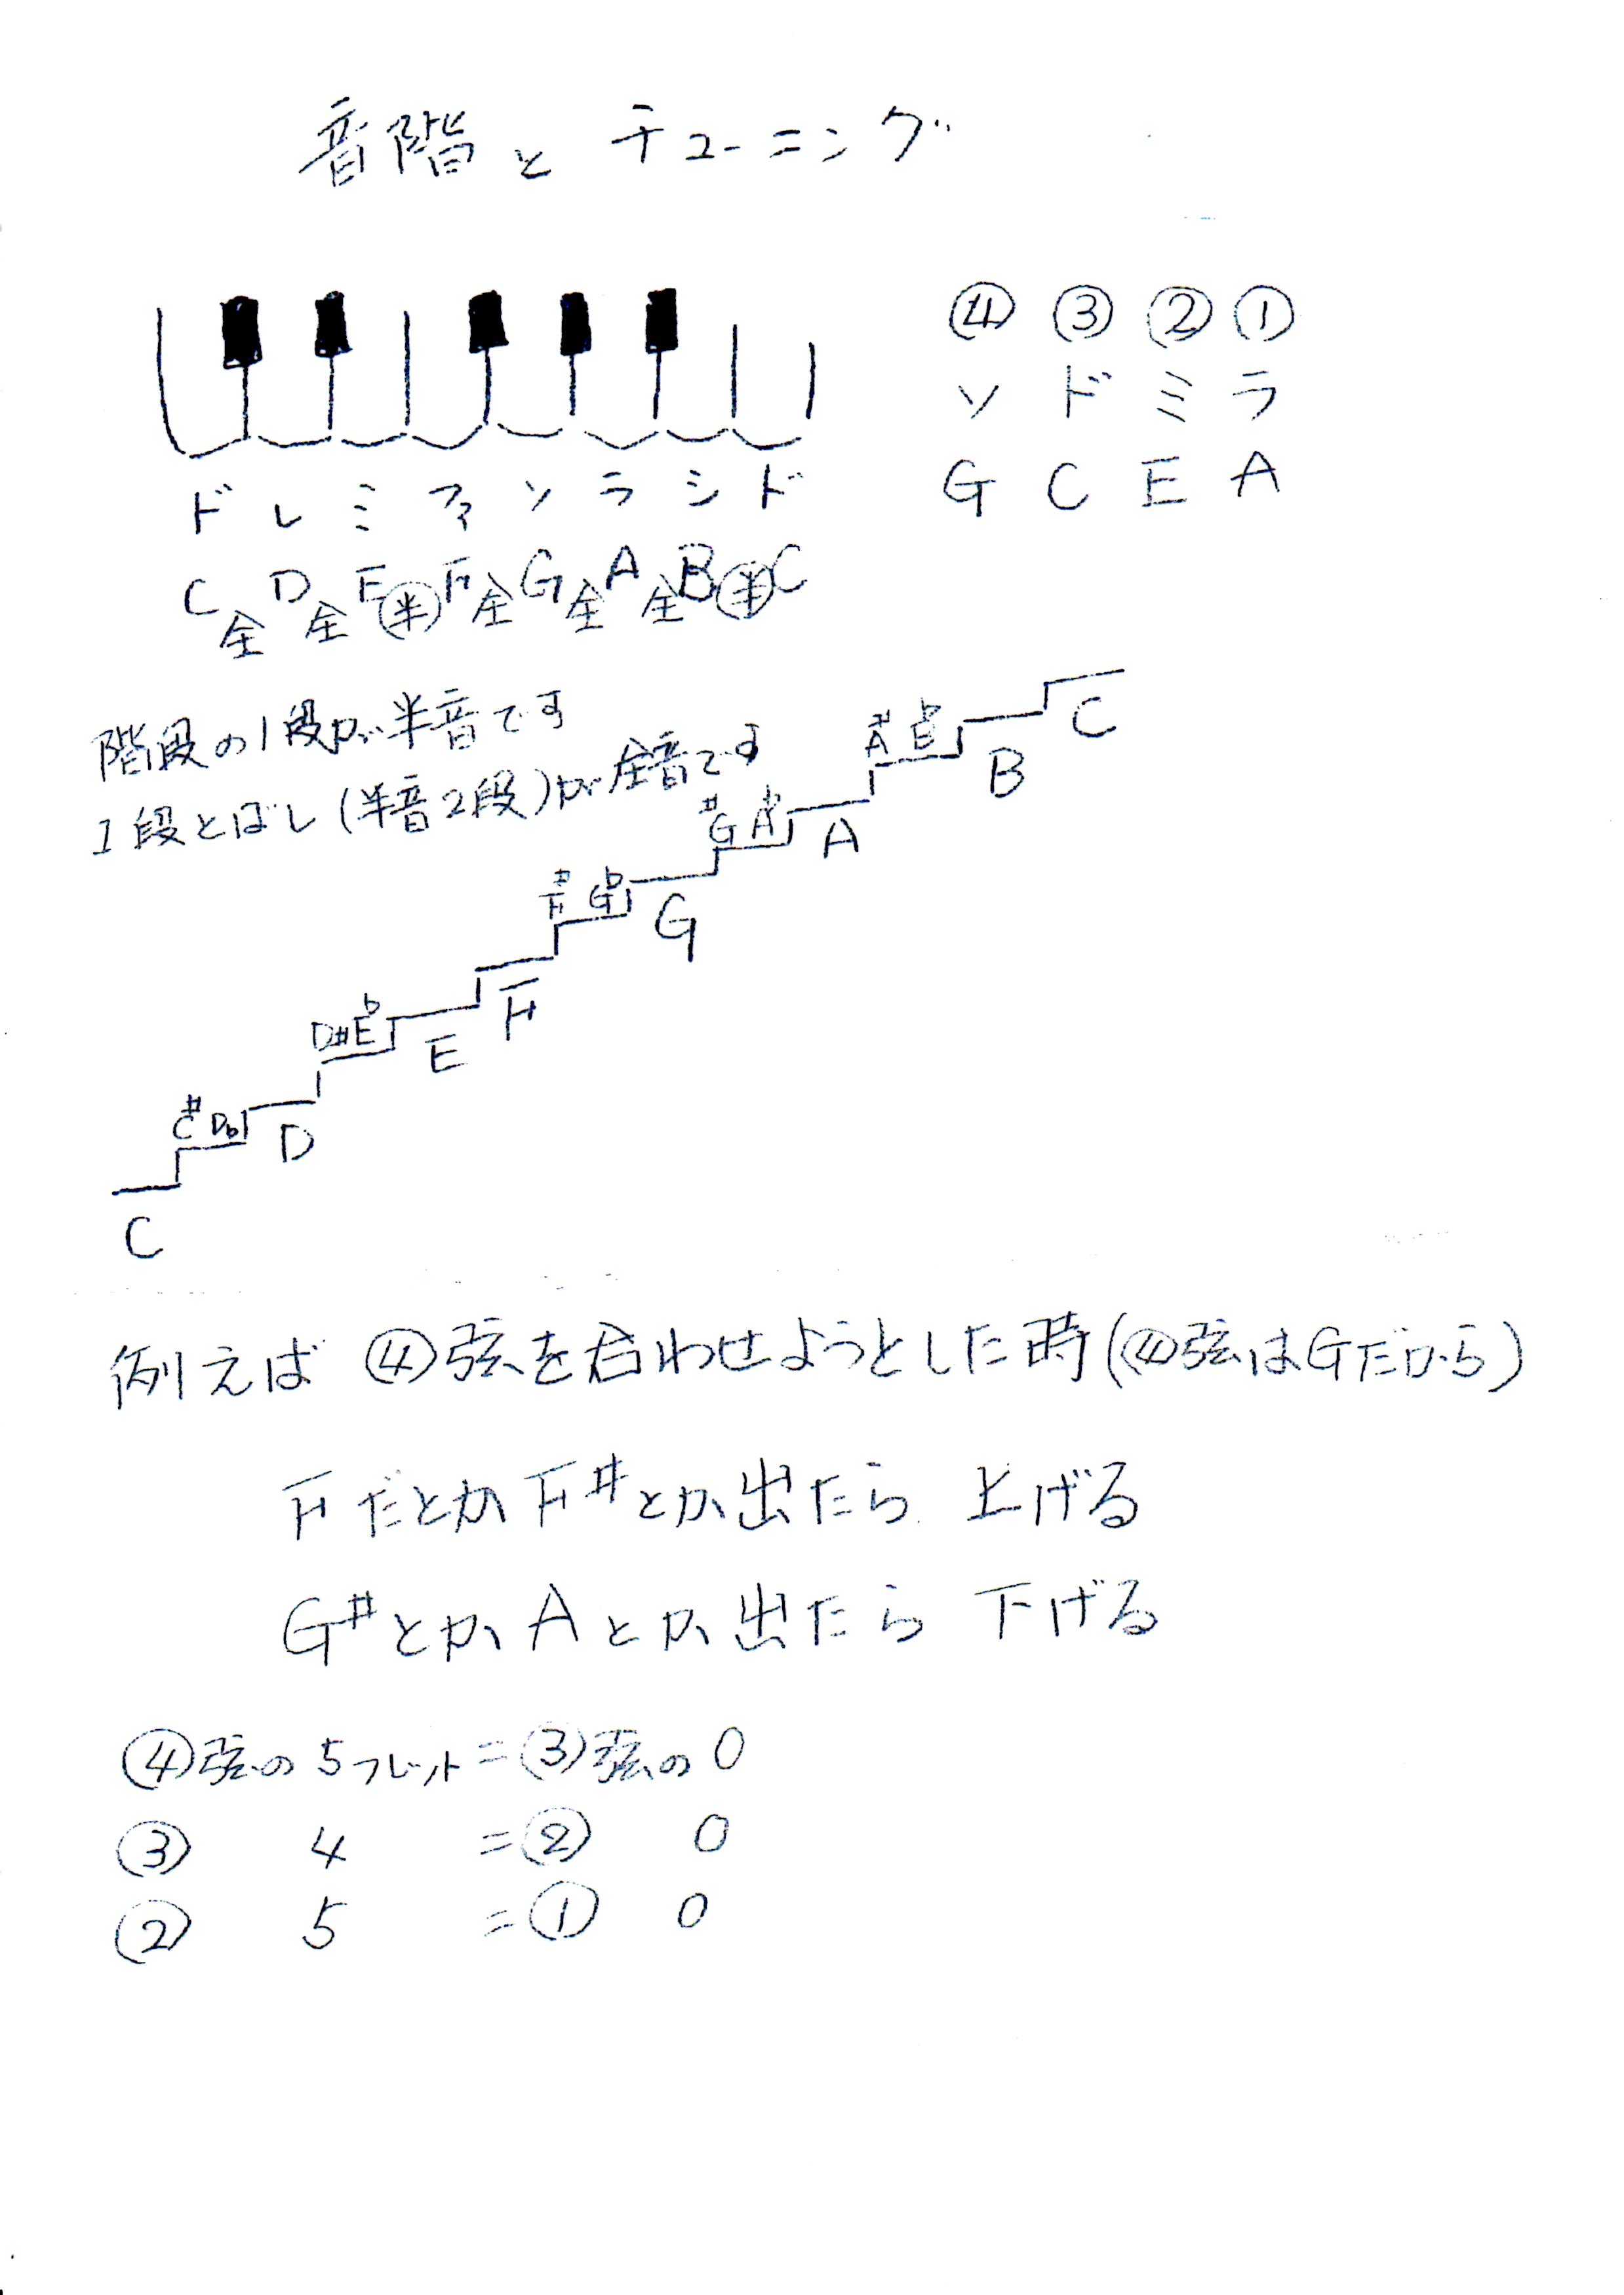 音階とチューニング
④ ③ ② ①
ソ ド ミ ラ
G C E A
ド レ ミ ファ ソ ラ シ ド
C 全 D 全 E 半 F 全 G 全 A 全 B 半 C
階段の1段が半音です
1段とばし(半音2段)が全音です
C
B
A# B♭
A
G# A♭
G
F# G♭
F
E
D# E♭
D
C# D♭
C
例えば ④弦を合わせようとした時(④弦はGだから)
FだとかF#とか出たら 上げる
G#とかAとか出たら 下げる
④弦の5フレット=③弦の0
③ 4 =② 0
② 5 =① 0